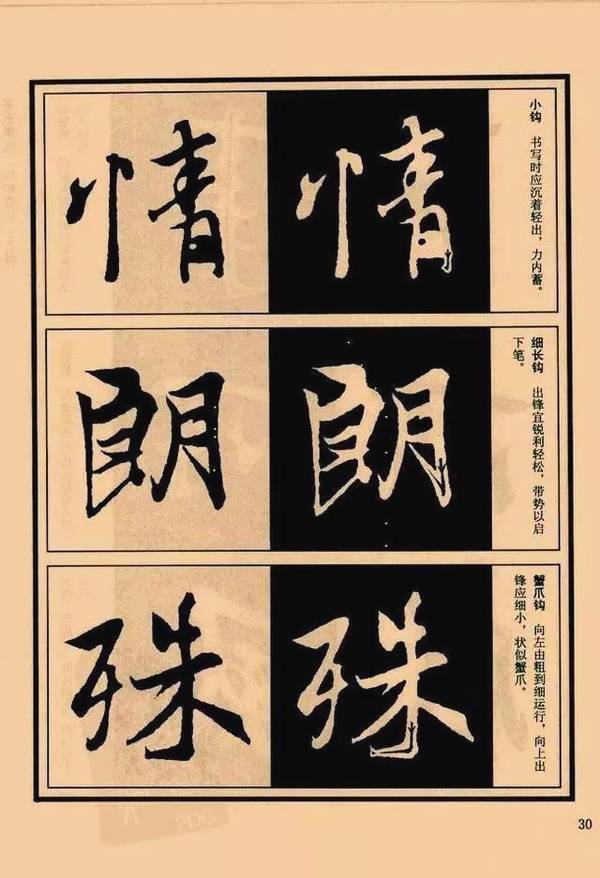 情 情
小钩 书写时应沉着轻出，力内蓄。
朗 朗
细长钩 出锋宜锐利轻松，带势以启
下笔。
殊 殊
蟹爪钩 向左由粗到细运行，向上出
锋应细小，状似蟹爪。
30
PDG